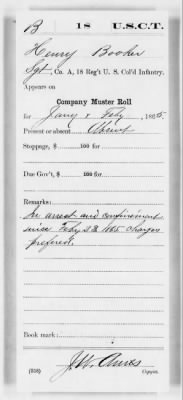 B | 18 | U.S.C.T.
Henry Booker
Sgt, Co. A, 18 Reg't U. S. Col'd Infantry.
Appears on
Company Muster Roll
for Jany & Feby, 1865.
Present or absent Absent
Stoppage, $ 100 for
Due Gov't, $ 100 for
Remarks:
In arrest and confinement
since Feby 28 1865 charges
prefered.
Book mark:
J.W. Ames
(358) Copyist.